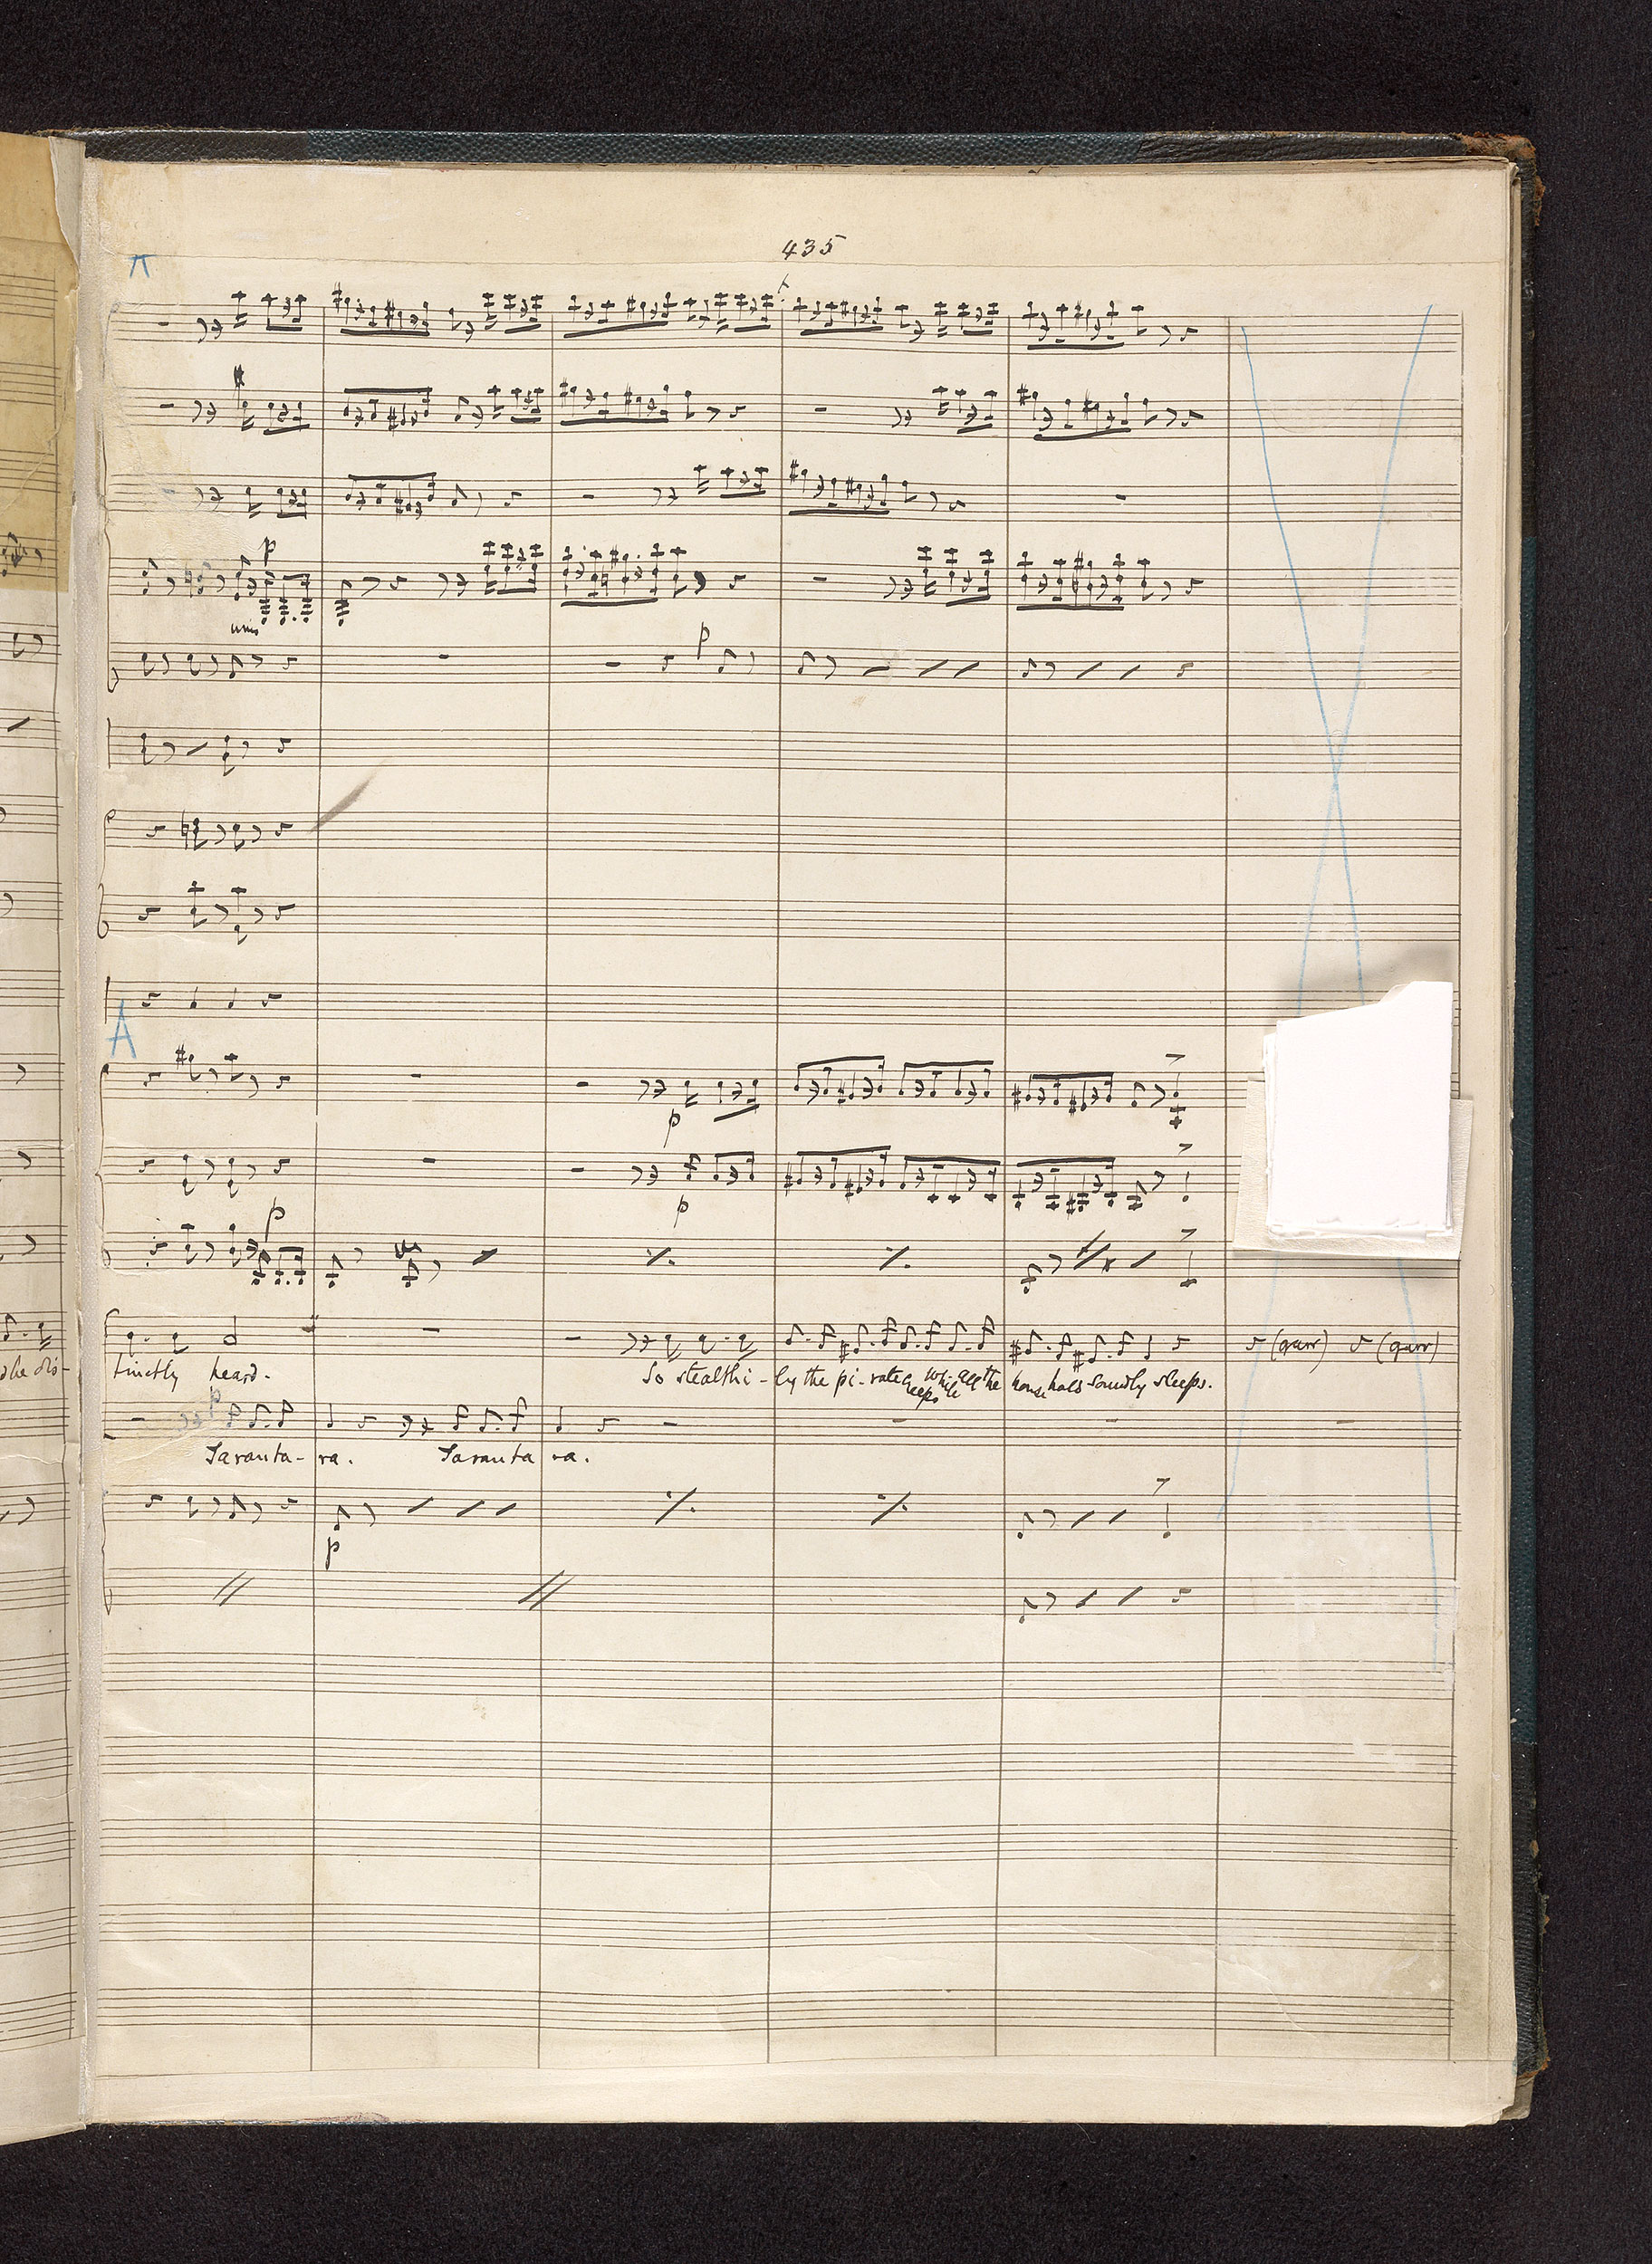 435
p
unis
p
A
p
p
p
(quer) (quer)
dhe dis- tinctly heard. So stealthi - ly the pi - rate creeps while all the house hold soundly sleeps.
p
Taranta - ra. Taranta ra.
p